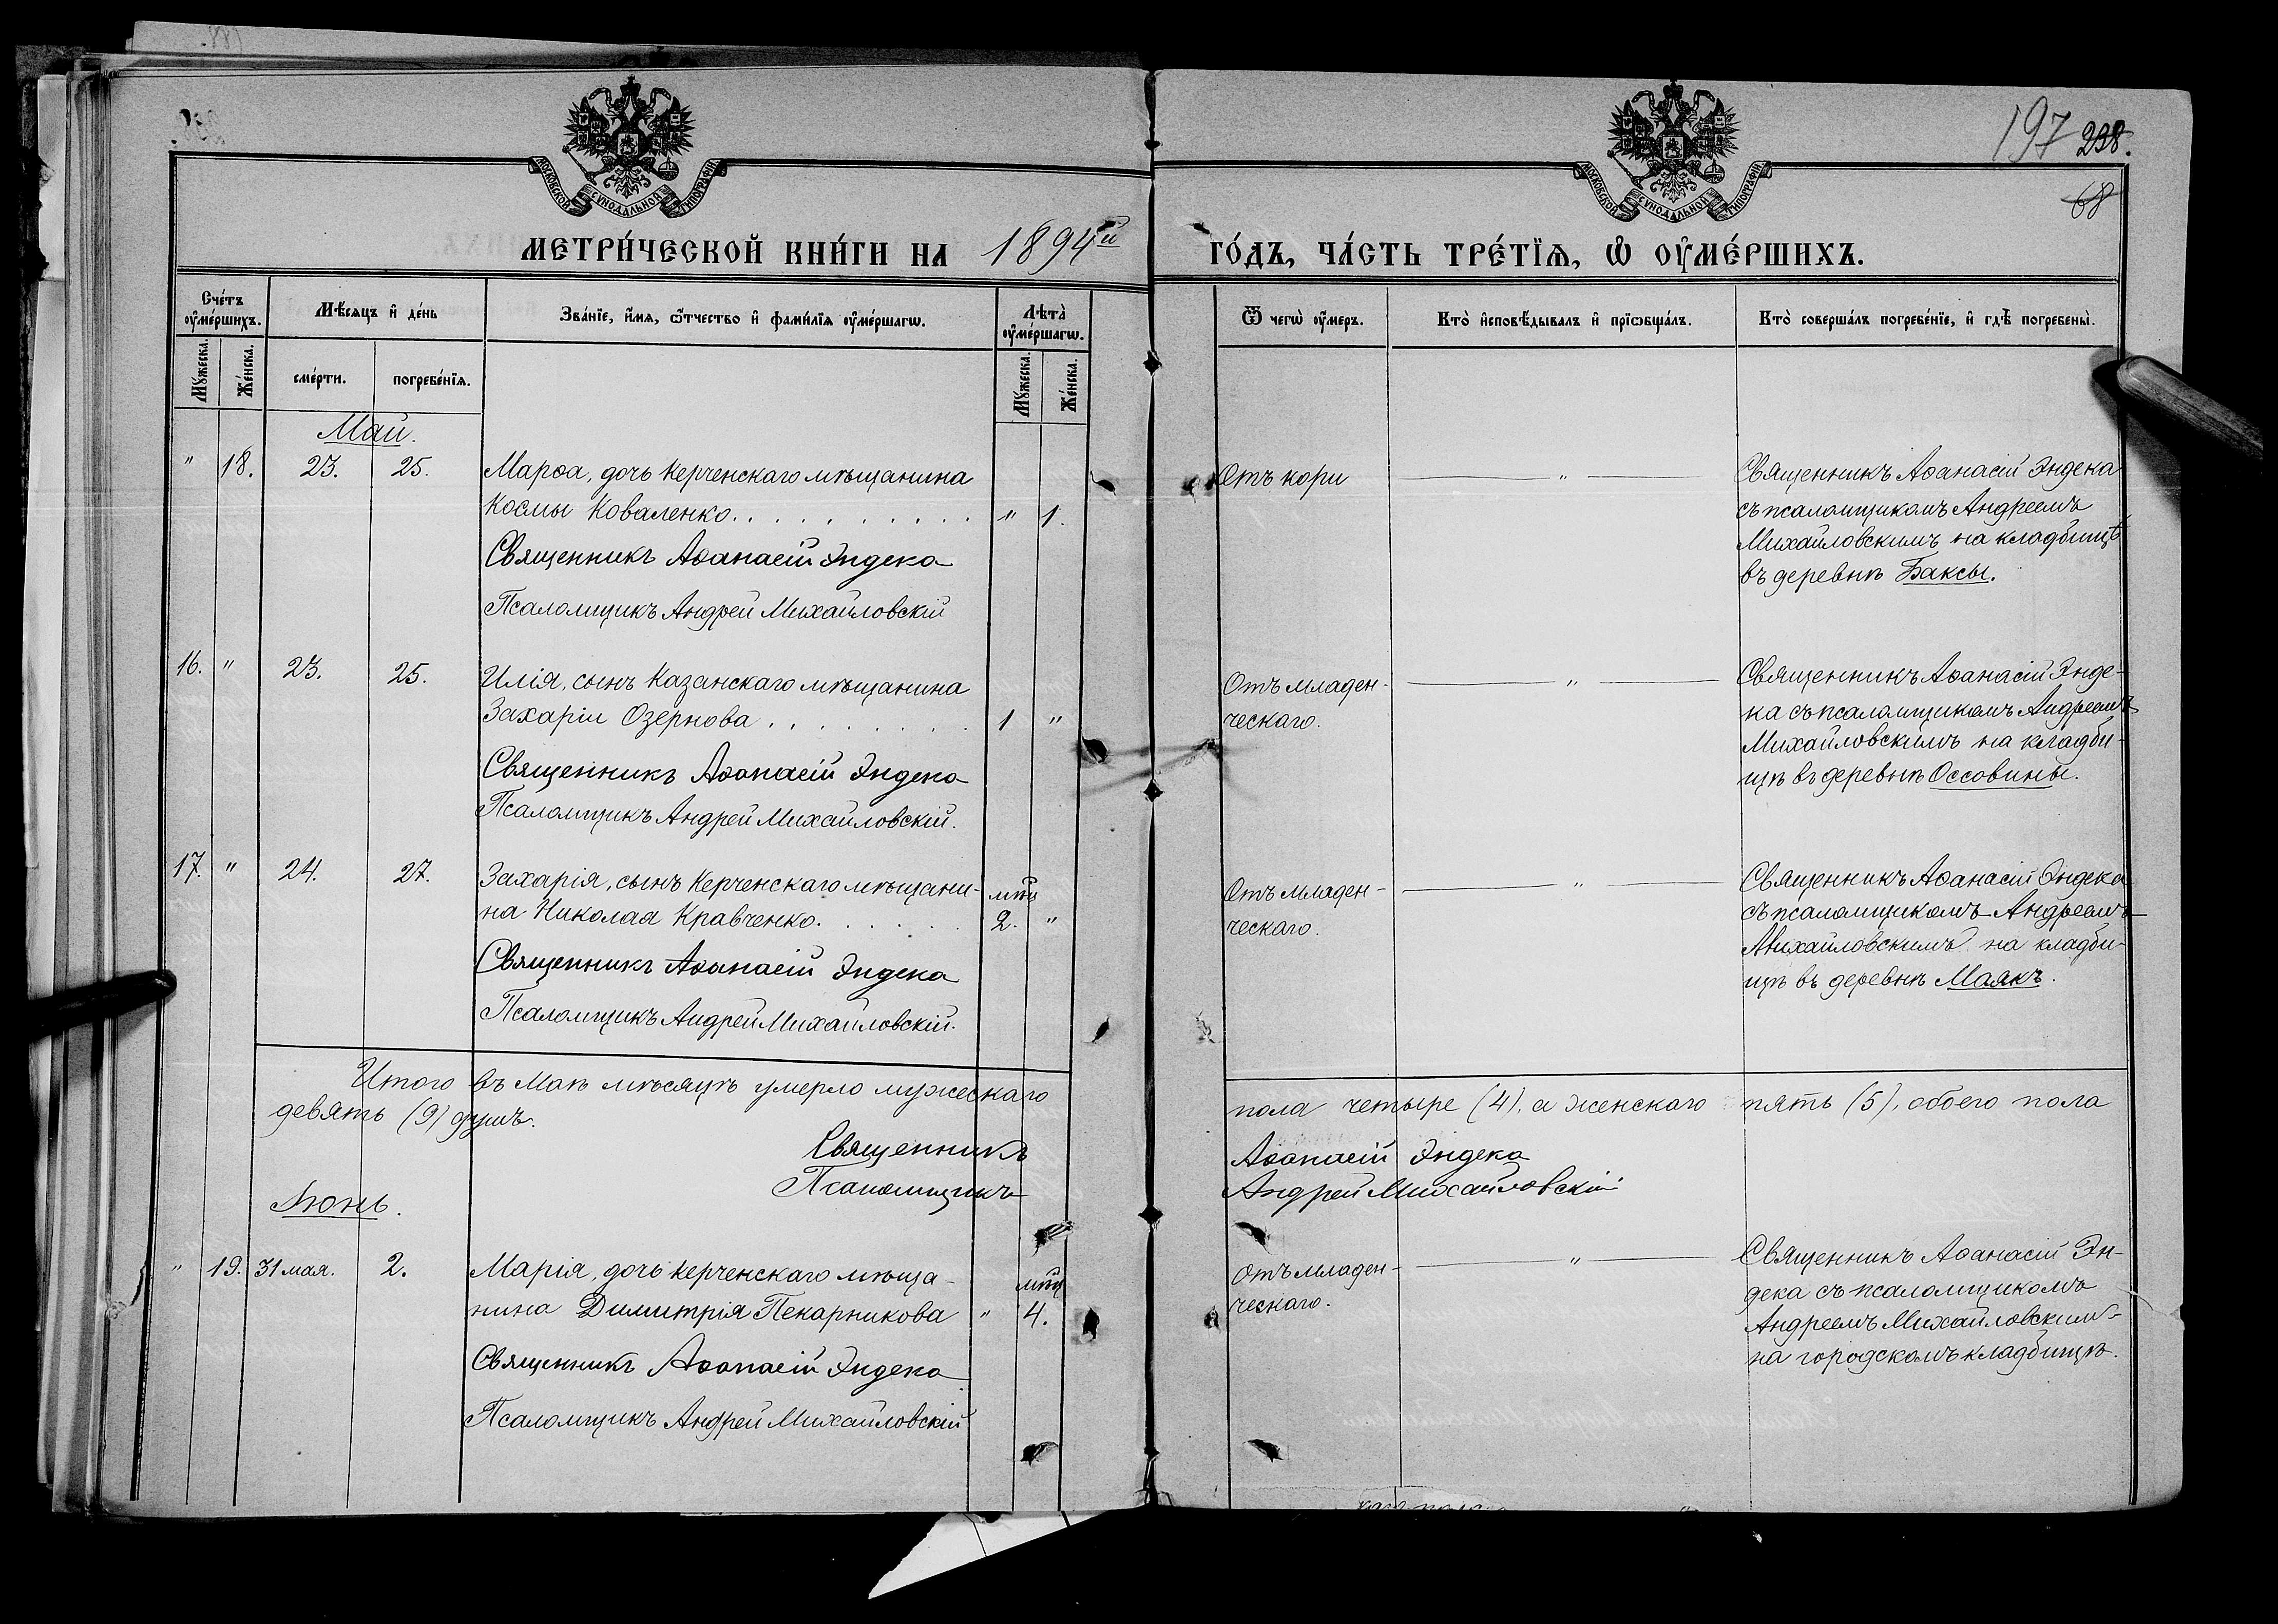 197 238.
68
МОСКОВСКОЙ СѴНОДАЛЬНОЙ ТИПОГРАФІИ
МОСКОВСКОЙ СѴНОДАЛЬНОЙ ТИПОГРАФІИ
МЕТРИ́ЧЕСКОЙ КНИ́ГИ НА 1894й ГО́ДЪ, ЧА́СТЬ ТРЕ́ТЇѦ, Ѡ ОУ҆МЕ́РШИХЪ.
Сче́тъ оу҆ме́ршихъ.
Мѣ́сѧцъ и҆ де́нь
Зва́нїе, и҆́мѧ, ѻ҆́тчество и҆ фами́лїѧ оу҆ме́ршагѡ.
Лѣта̀ оу҆ме́ршагѡ.
Ѿ чегѡ̀ оу҆́меръ.
Кто̀ и҆сповѣ́дывалъ и҆ прїѡбща́лъ.
Кто̀ соверша́лъ погребе́нїе, и҆ гдѣ̀ погребены̀.
Мꙋ́жеска.
Же́нска.
сме́рти.
погребе́нїѧ.
Мꙋ́жеска.
Же́нска.
Май.
" 18. 23. 25. Марѳа, дочь Керченскаго мѣщанина
Космы Коваленко. . . . . . . . . . " 1.
Священникъ Аѳанасій Эндека
Псаломщикъ Андрей Михайловскій
Отъ кори "
Священникъ Аѳанасій Эндека
съ псаломщикомъ Андреемъ
Михайловскимъ на кладбищѣ
въ деревнѣ Баксы.
16. " 23. 25. Илія, сынъ Казанскаго мѣщанина
Захаріи Озернова . . . . . . . . 1 "
Священникъ Аѳанасій Эндека
Псаломщикъ Андрей Михайловскій.
Отъ младен-
ческаго. "
Священникъ Аѳанасій Энде-
ка съ псаломщикомъ Андреемъ
Михайловскимъ на кладби-
щѣ въ деревнѣ Оссовины.
17. " 24. 27. Захарія, сынъ Керченскаго мѣщани- мѣц
на Николая Кравченко. . . . . . 2. "
Священникъ Аѳанасій Эндека
Псаломщикъ Андрей Михайловскій.
Отъ младен-
ческаго. "
Священникъ Аѳанасій Эндека
съ псаломщикомъ Андреемъ
Михайловскимъ на кладби-
щѣ въ деревнѣ Маякъ.
Итого въ Маѣ мѣсяцѣ умерло мужескаго пола четыре (4), а женскаго пять (5), обоего пола
девять (9) душъ.
Священникъ Аѳанасій Эндека
Псаломщикъ Андрей Михайловскій
Іюнь.
" 19. 31 мая. 2. Марія, дочь керченскаго мѣща- мѣц
нина Димитрія Пекарникова " 4.
Священникъ Аѳанасій Эндека
Псаломщикъ Андрей Михайловскій
Отъ младен-
ческаго. "
Священникъ Аѳанасій Эн-
дека съ псаломщикомъ
Андреемъ Михайловскимъ
на городскомъ кладбищѣ.